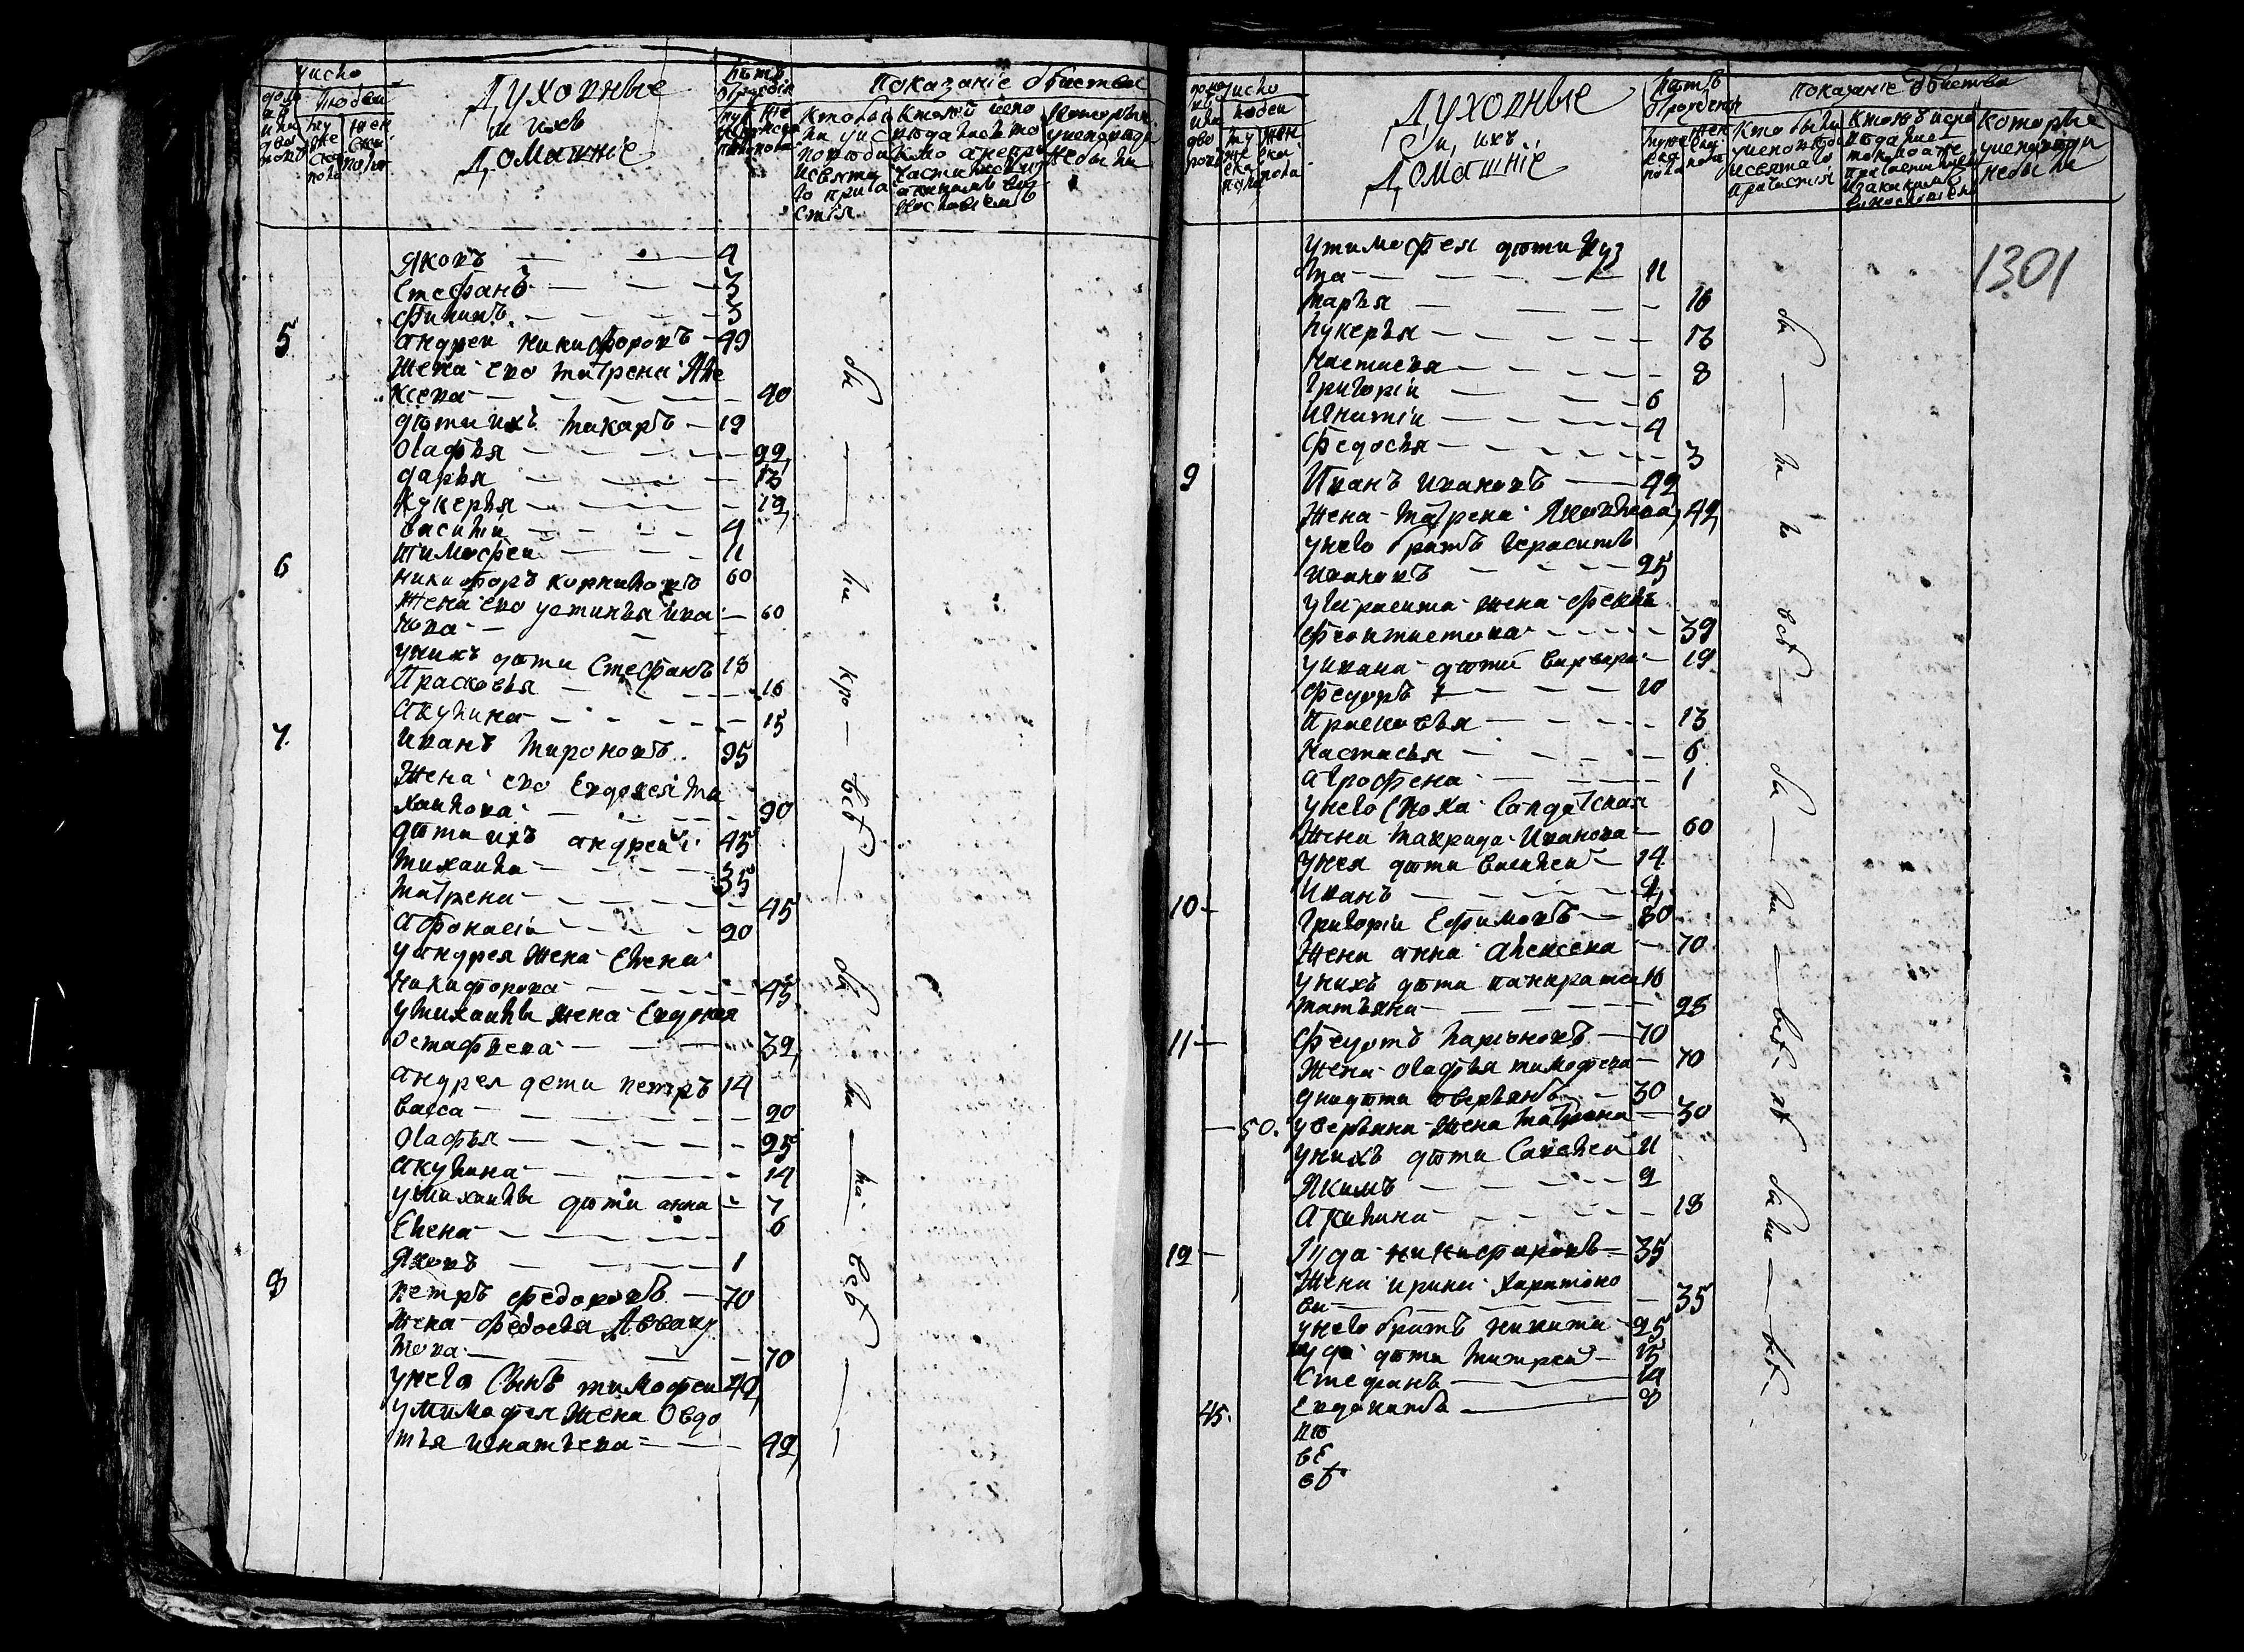 число
людеи
Духовные
и ихъ
Домашніе
Лѣта
Показаніе бытия
Яковъ 4
Стефанъ 3
Филипъ 3
5 андреи никифоровъ 49
Жена ево матрена Але
ксева 40
дѣти ихъ макаръ 19
Огафья 22
дарья 13
Лукерья 12
василіи 4
тимофеи 11
6 никифоръ корниловъ 60
Жена ево устинья ива
нова 60
унихъ дѣти Стефанъ 18
Прасковья 16
акулина 15
7. иванъ мироновъ 95
Жена ево Евдокея ми
хаилова 90
дѣти ихъ андреи 45
михаила 35
матрена 45
афонасіи 20
уандрея жена Елена
никифорова 45
умихаилы жена Евдокея
остафьева 32
андрея дети петръ 14
васса 20
Огафья 25
акулина 14
умихаилы дѣти анна 7
Елена 6
Яковъ 1
8 петръ федоровъ 70
Жена федосья Авваку
мова 70
унего Сынъ тимофеи 42
утимофея Жена Овдо
тья игнатьева 42
были все были все
число
людеи
Духовные
и ихъ
Домашніе
Лѣта
отрожденія
показаніе бытия
Которые
уисповѣди
небыли
1301
утимофея дѣти Куз
ма 11
марья 16
лукерья 13
Настасья 8
Григоріи 6
Игнатіи 4
Федосья 3
9 Иванъ ивановъ 42
Жена матрена Яковлева 42
унего братъ Герасимъ
ивановъ 25
угерасима жена фекла
феоктистова 39
уивана дѣти варвара 19
федоръ 10
Прасковья 13
Настасья 6
агрофена 1
унего сноха Салдатская
жена маврида Иванова 60
унея дѣти василеи 14
Иванъ
10 Григоріи Ефимовъ 80
Жена анна алексеева 70
унихъ дѣти панкратеи 16
татьяна 28
11 федотъ ларионовъ 70
Жена огафья тимофева 70
дѣти аверьянъ 30
50. уверьяна жена матрона 30
унихъ дѣти Савелеи 11
Якимъ 9
Акилина 18
12 Иуда никифоровъ 35
Жена ирина харитоно
ва 35
унего братъ никита 25
уиуды дѣти митреи 15
Стефанъ 14
45. Евдокимъ 8
были все были все были все